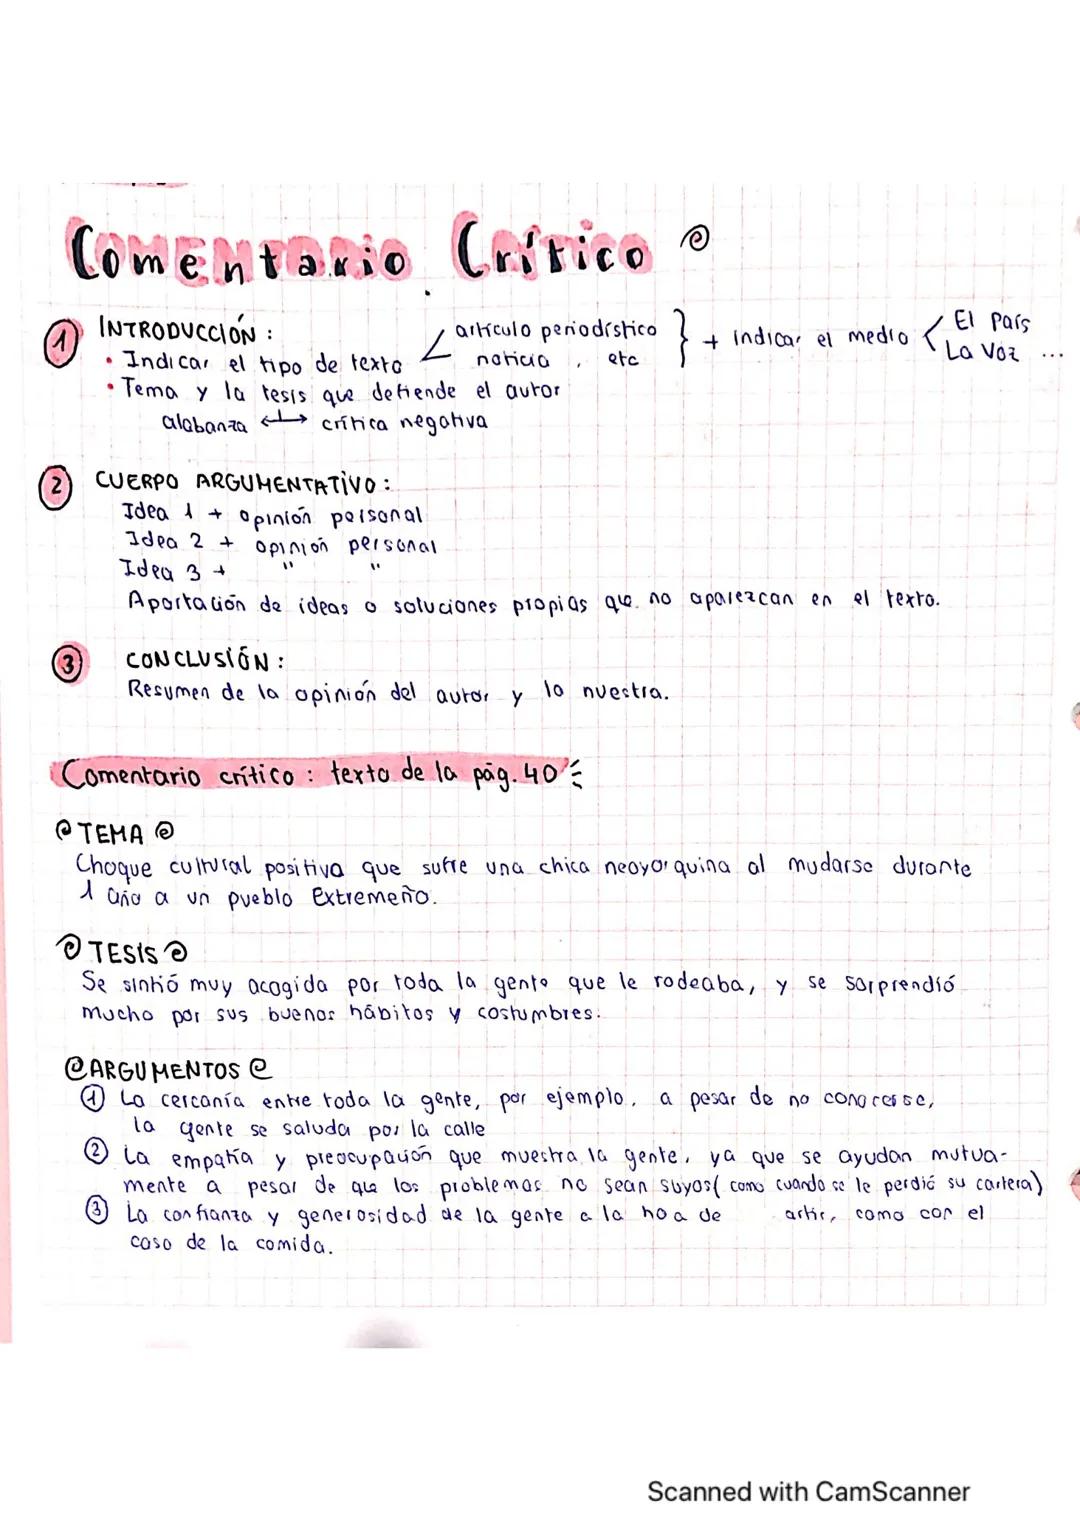 Comentario Crítico
① INTRODUCCIÓN:
• Indicar el tipo de texto < artículo periodístico noticia, etc } + indicar el medio < El País La Voz ...
• Tema y la tesis que defiende el autor
alabanza ↔ crítica negativa
② CUERPO ARGUMENTATIVO:
Idea 1 + opinión personal
Idea 2 + opinión personal
Idea 3 + " "
Aportación de ideas o soluciones propias que no aparezcan en el texto.
③ CONCLUSIÓN:
Resumen de la opinión del autor y la nuestra.
Comentario crítico: texto de la pág. 40
TEMA
Choque cultural positiva que sufre una chica neoyorquina al mudarse durante
1 año a un pueblo Extremeño.
TESIS
Se sintió muy acogida por toda la gente que le rodeaba, y se sorprendió
mucho por sus buenos hábitos y costumbres.
ARGUMENTOS
① La cercanía entre toda la gente, por ejemplo, a pesar de no conocerse,
la gente se saluda por la calle
② La empatía y preocupación que muestra la gente, ya que se ayudan mutua-
mente a pesar de que los problemas no sean suyos (como cuando se le perdió su cartera)
③ La confianza y generosidad de la gente a la de como con el
caso de la comida.
Scanned with CamScanner